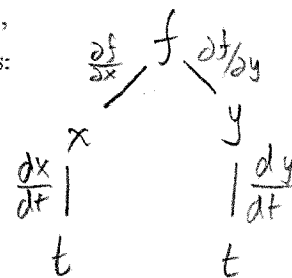 ,
s:
∂f/∂x f ∂f/∂y
x y
dx/dt dy/dt
t t